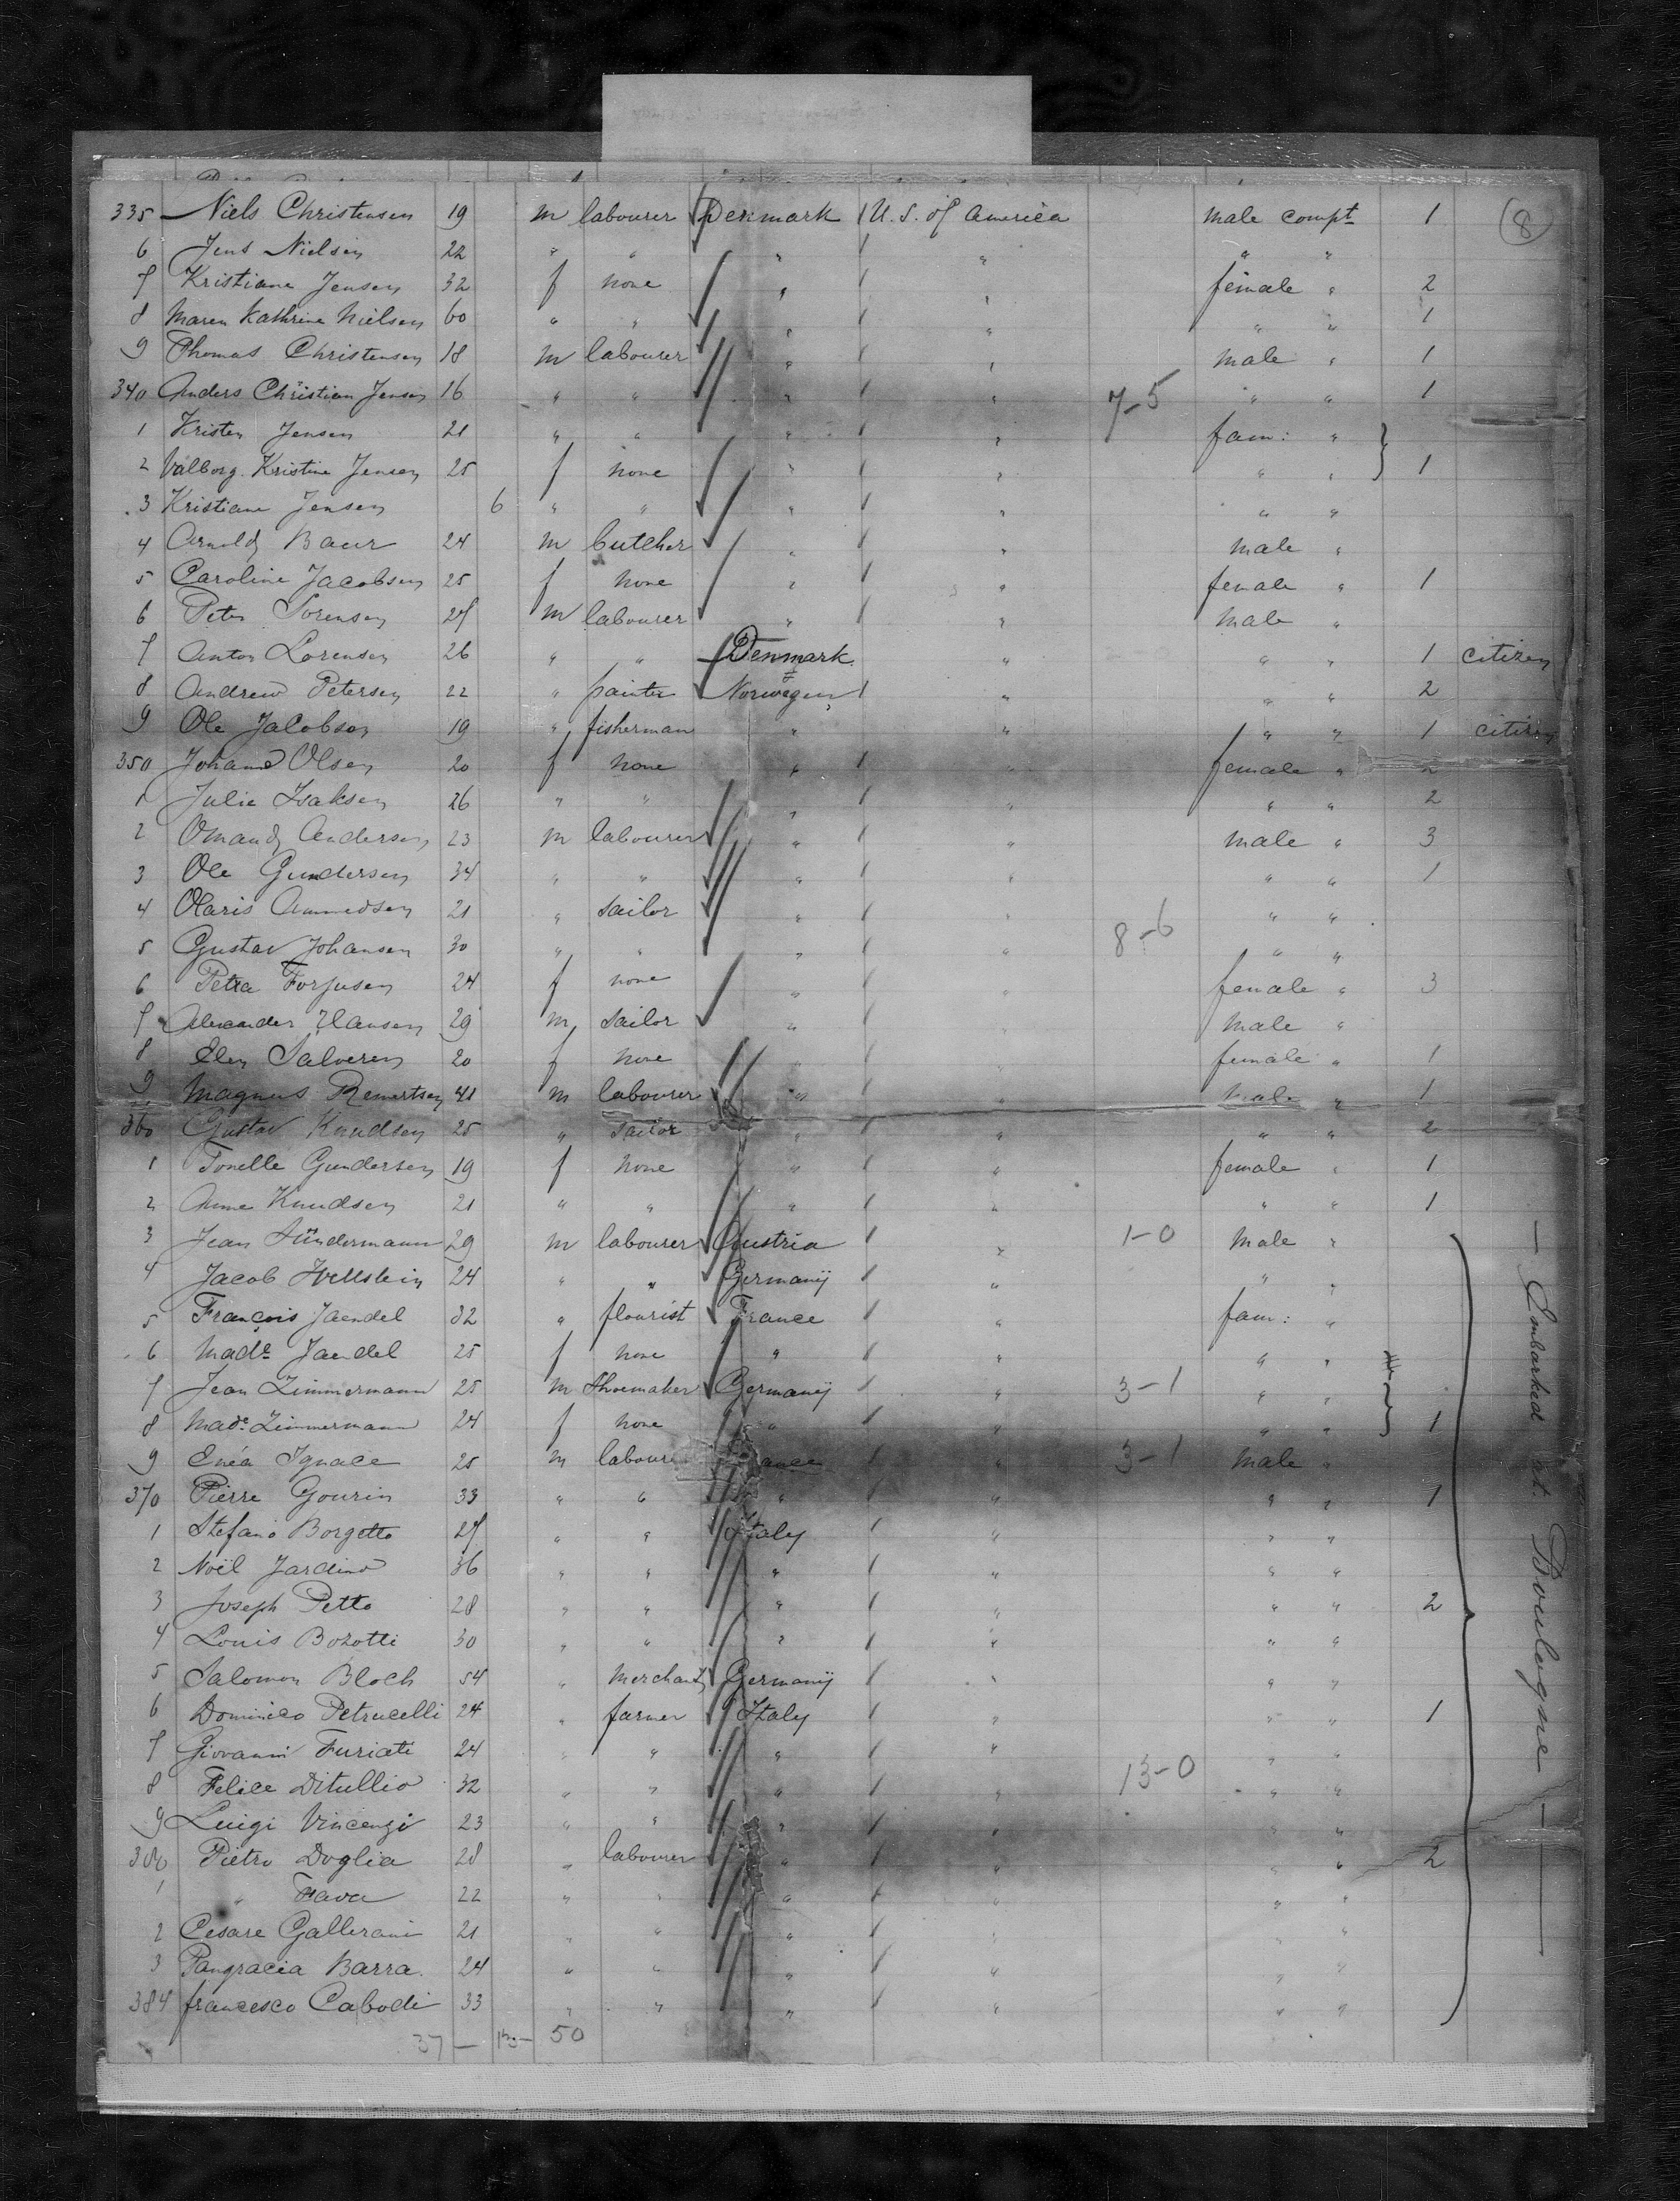 335 Niels Christensen 19 m labourer Denmark / U.S. of America male compt 1 (8)
6 Jens Nielsen 22 " " " / " " "
7 Kristiane Jensen 32 f none " / " female " 2
8 Maren Kathrine Nielsen 60 " " " / " " " 1
9 Thomas Christensen 18 m labourer " / " male " 1
340 Anders Christian Jensen 16 " " " / " 7-5 " " 1
1 Kristen Jensen 21 " " " / " fam: "
2 Valborg Kristine Jensen 25 f none " / " " " 1
3 Kristiane Jensen 6 " " " / " " "
4 Arnold Baur 24 m butcher " / " male "
5 Caroline Jacobsen 25 f none " / " female " 1
6 Peter Sorensen 27 m labourer " / " male "
7 Anton Lorensen 26 " " Denmark " " " 1 citizen
8 Andrew Petersen 22 " painter Norwegen / " " " 2
9 Ole Jacobsen 19 " fisherman " " " " 1 citizen
350 Johanne Olsen 20 f none " / " female " 2
1 Julie Isaksen 26 " " " / " " " 2
2 Omand Andersen 23 m labourer " / " male " 3
3 Ole Gundersen 34 " " " / " " " 1
4 Olaris 21 " sailor " / " " "
5 Gustav Johansen 30 " " " / " 8-6 " "
6 Petra 24 f none " / " female " 3
7 Alexander Hansen 29 m sailor " / " male "
8 Elen Salvesen 20 f none " / " female " 1
9 Magnus Reinertsen 41 m labourer " / " male " 1
360 Gustav Knudsen 25 " sailor " " " " 2
1 Tonelle Gundersen 19 f none " / " female " 1
2 Anne Knudsen 21 " " " / " " " 1
3 Jean Sündermann 29 m labourer Austria / " 1-0 male "
4 Jacob 24 " " Germany / " " "
5 François Jaendel 32 " flourist France / " fam: "
6 Made Jaendel 25 f none " / " " "
7 Jean Zimmermann 25 m Shoemaker Germany / " 3-1 " "
8 Made Zimmermann 24 f none " / " " " 1
9 Enéa Ignace 25 m labour France / " 3-1 male "
370 Pierre Gourin 33 " " " / " " " 1
1 Stefano Borgetto 27 " " Italy / " " "
2 Noël Jardino 36 " " " / " " "
3 Joseph Petto 28 " " " / " " " 2
4 Louis Bozotti 30 " " " / " " "
5 Salomon Bloch 54 " merchant Germany / " " "
6 Dominico Petrucelli 24 " farmer Italy / " " " 1
7 Giovanni Furiati 24 " " " / " " "
8 Felice Ditullio 32 " " " / " 13-0 " "
9 Luigi Vincenzi 23 " " " / " " "
380 Pietro Doglia 28 " labourer " / " " " 2
1 " Fava 22 " " " / " " "
2 Cesare Gallerani 21 " " " / " " "
3 Pangracia Barra 24 " " " / " " "
384 francesco Cabodi 33 " " " / " " "
37 — 13 — 50
— Embarked at Boulogne —